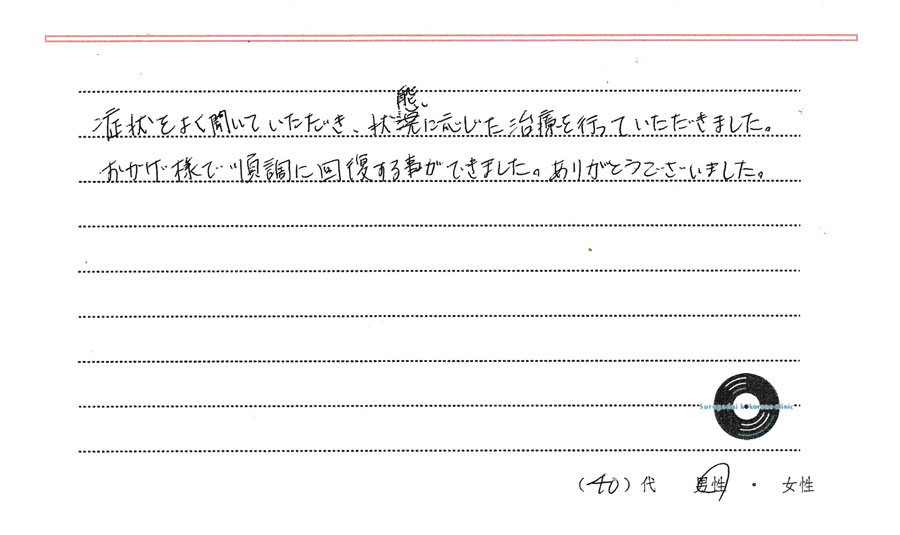 症状をよく聞いていただき、状態に応じた治療を行っていただきました。
おかげ様で順調に回復する事ができました。ありがとうございました。
Surugadai kokorono clinic
(40)代 男性 ・ 女性